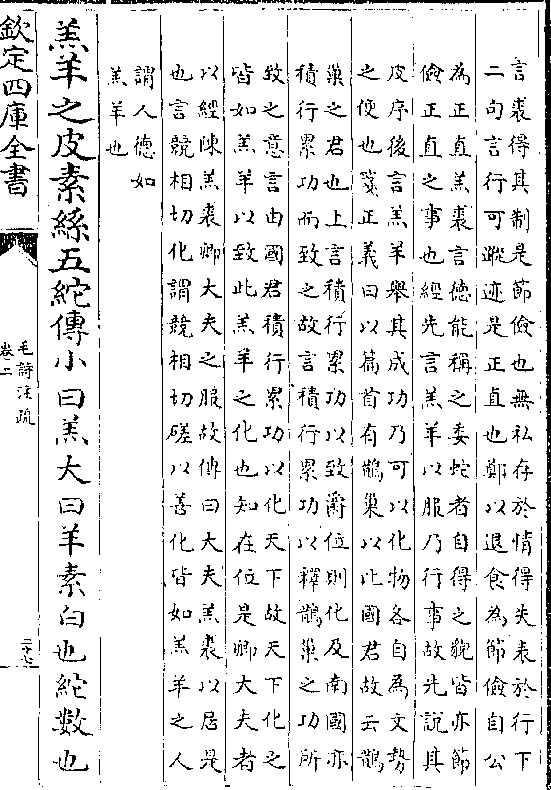 言裘得其制是節儉也無私存於情得失表於行下
二句言行可蹤迹是正直也鄭以退食為節儉自公
為正直羔裘言德能稱之委蛇者自得之貌皆亦節
儉正直之事也經先言羔羊以服乃行事故先説其
皮序後言羔羊舉其成功乃可以化物各自為文勢
之便也箋正義曰以篇首有鵲巢以比國君故云鵲
巢之君也上言積行累功以致爵位則化及南國亦
積行累功而致之故言積行累功以釋鵲巢之功所
致之意言由國君積行累功以化天下故天下化之
皆如羔羊以致此羔羊之化也知在位是卿大夫者
以經陳羔裘卿大夫之服故傳曰大夫羔裘以居是
也言競相切化謂競相切磋以善化皆如羔羊之人
謂人德如
羔羊也
羔羊之皮素絲五紽傳小曰羔大曰羊素白也紽數也
欽定四庫全書
毛詩注疏
卷二
二十七